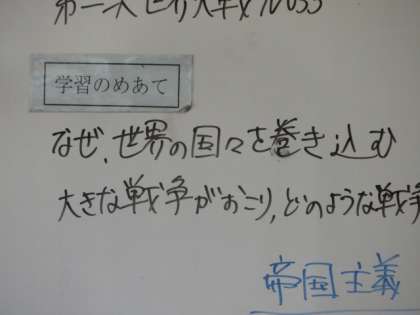 第二次世界大戦
学習のめあて
なぜ、世界の国々を巻き込む
大きな戦争がおこり、どのような戦争
帝国主義